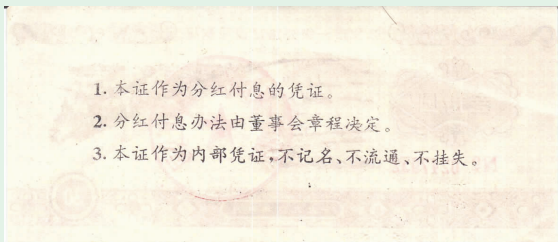 1. 本证作为分红付息的凭证。
2. 分红付息办法由董事会章程决定。
3. 本证作为内部凭证,不记名、不流通、不挂失。